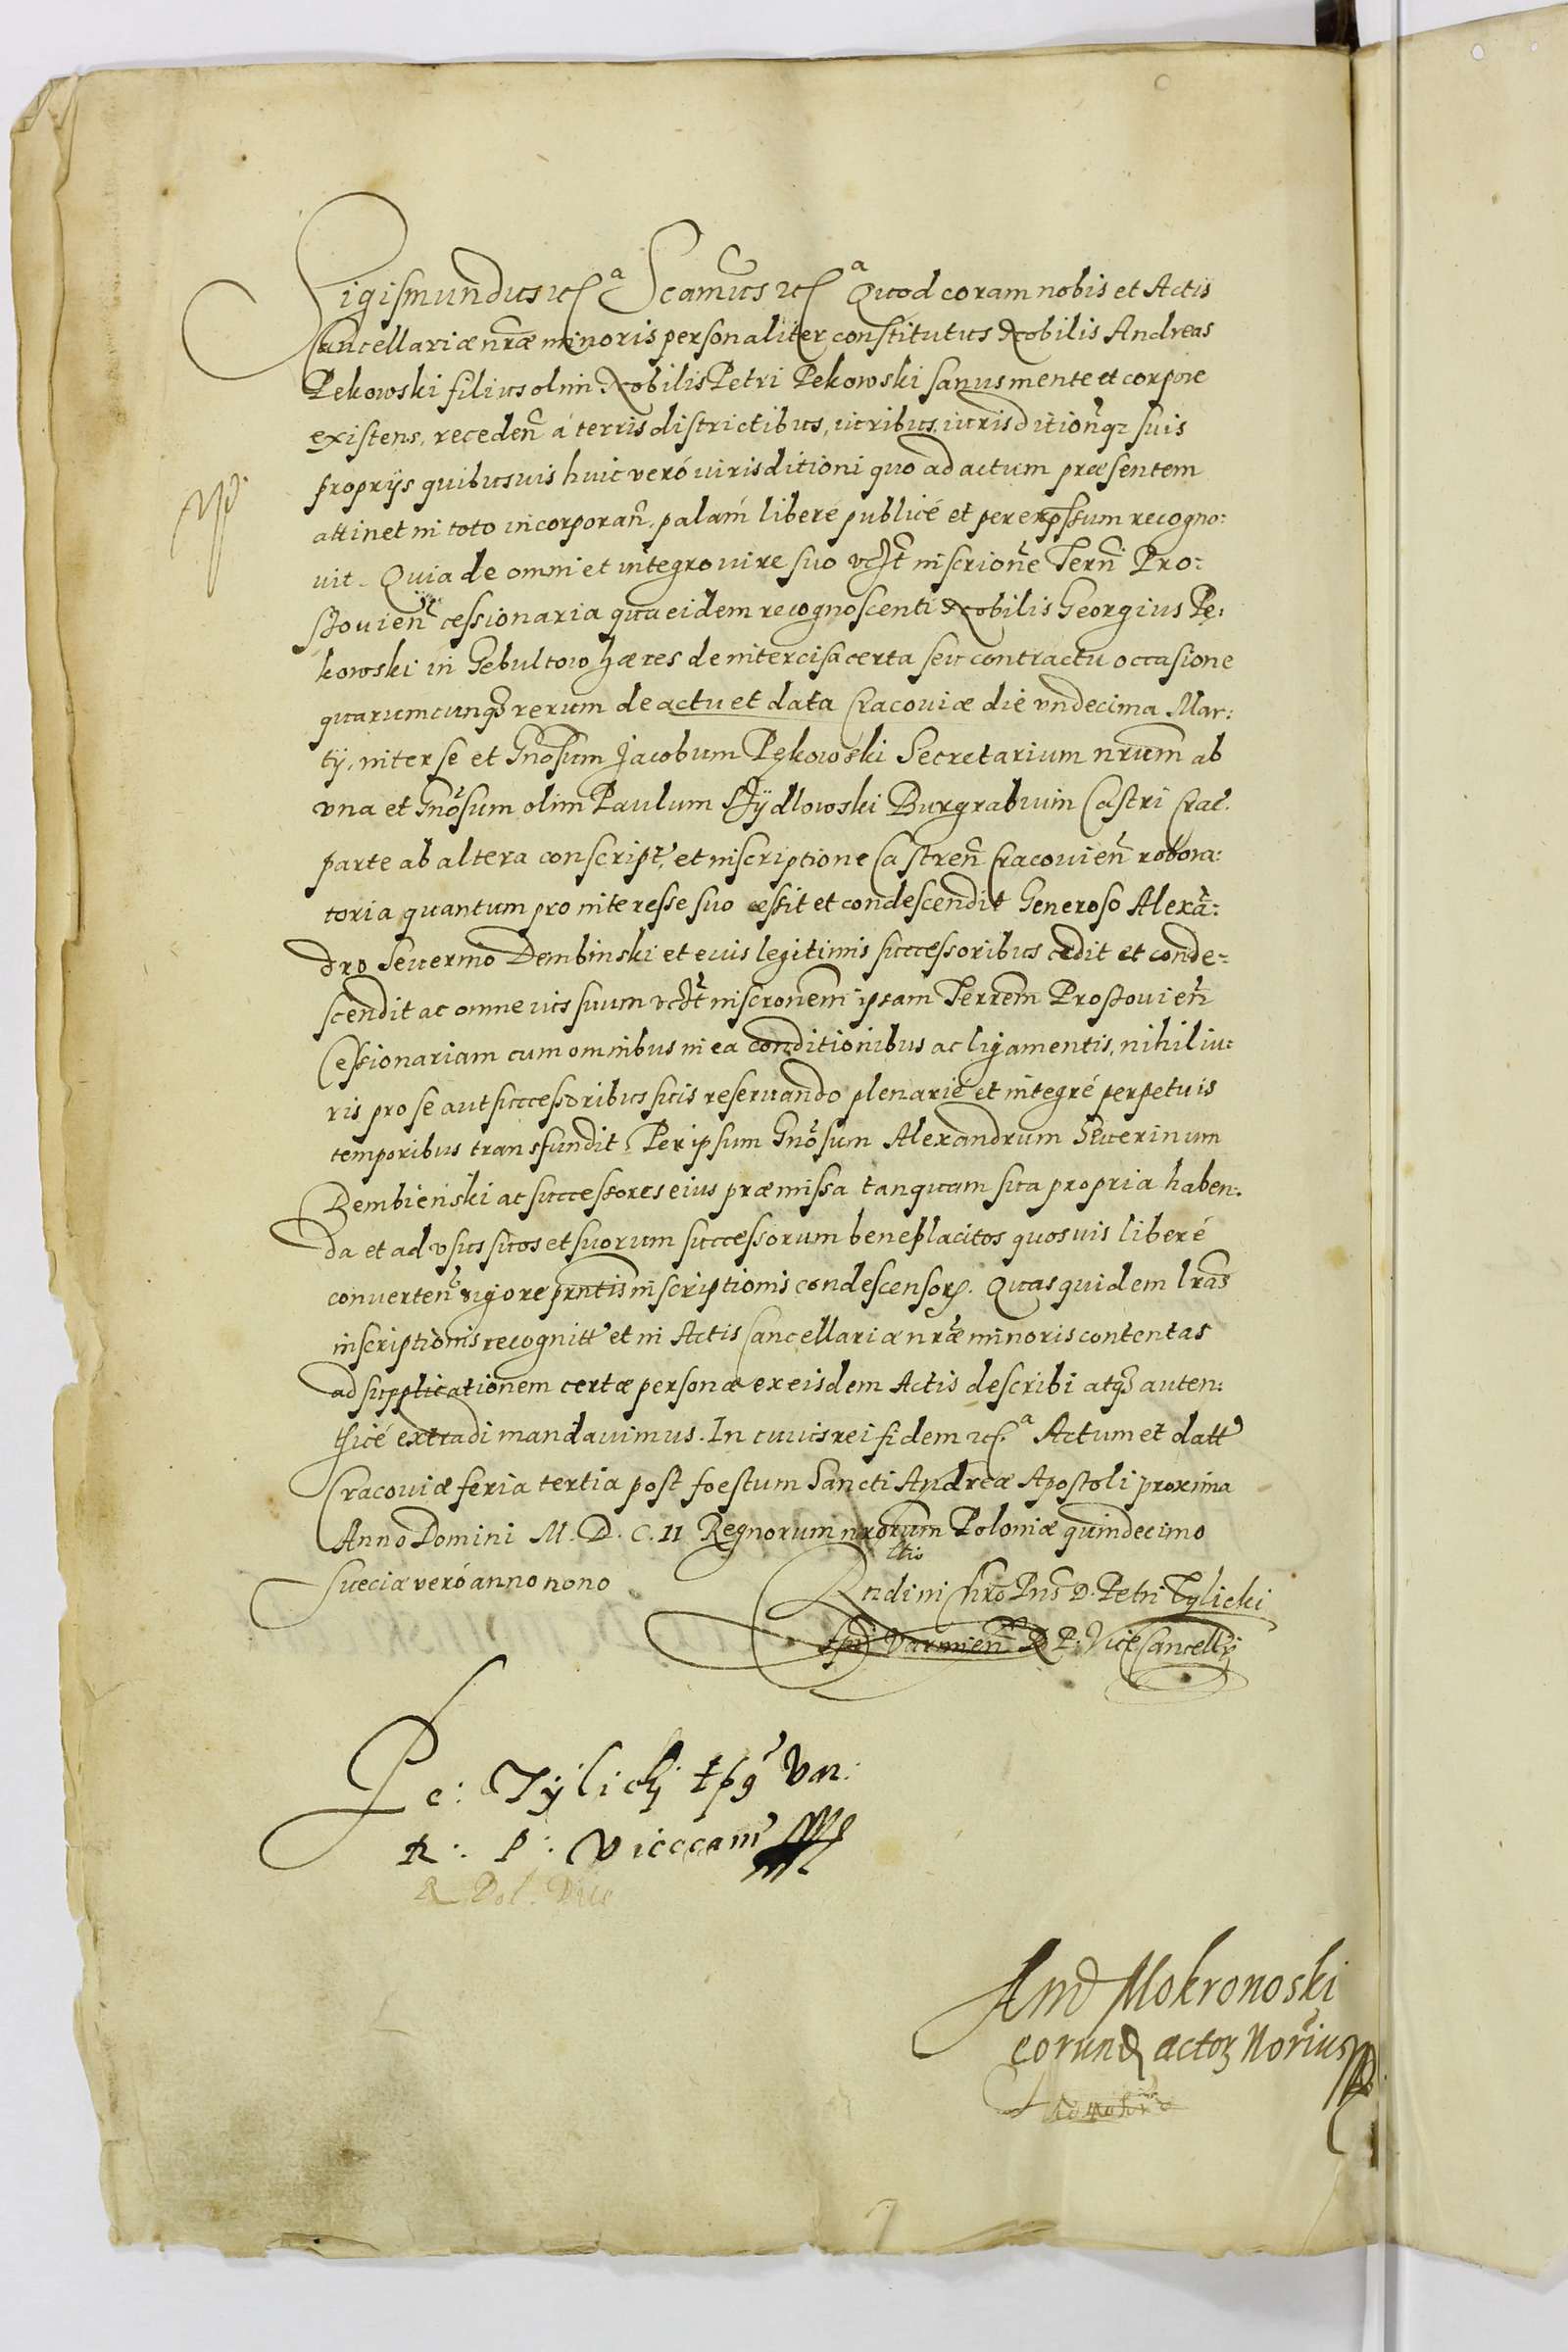 Sigismundus etc a Scamus etc a Quod coram nobis et Actis
Cancellariæ nræ minoris personaliter constitutus Nobilis Andreas
Pekowski filius olim Nobilis Petri Pekowski sanus mente et corpore
existens, receden á terris districtibus, iuribus, iurisditionq suis
proprijs quibusuis huic veró iurisditioni quo ad actum præsentem
attinet in toto incorporan, palám liberé publicé et per expssum recogno:
uit. Quia de omni et integro iure suo inscrione Terri Pro:
szouien cessionaria qua eidem recognoscenti Nobilis Georgius Pę:
kowski in Gebultow hæres de intercisa certa seu contractu occasione
quarumcunq rerum de actu et data Cracouiæ die vndecima Mar:
tij, inter se et Gnosum Jacobum Pękowski Secretarium nrum ab
vna et Gnosum olim Paulum Szÿdlowski Burgrabium Castri Crac.
parte ab altera conscript, et inscriptione Castren Cracouien robora:
toria quantum pro interesse suo cessit et condescendit Generoso Alexa:
dro Seuerino Dembinski et eius legitimis successoribus cedit et conde=
scendit ac omne ius suum inscronem ipsam Terrem Proszouien
Cessionariam cum omnibus in ea conditionibus ac ligamentis, nihil iu:
ris pro se aut successoribus suis reseruando plenarié et integré perpetuis
temporibus transfundit. Per ipsum Gnosum Alexandrum Seuerinum
Dembienski ac successores eius præmissa tanquam sua propria haben:
da et ad vsus suos et suorum successorum beneplacitos quosuis liberé
conuerten vigore prntis inscriptionis condescensor. Quas quidem lras
inscriptionis recognitt et in Actis Cancellariæ nræ minoris contentas
ad supplicationem certæ personæ ex eisdem Actis describi atq auten:
ticé extradi mandauimus. In cuius rei fidem etc a Actum et datt
Cracouiæ feria tertia post foestum Sancti Andreæ Apostoli proxima
Anno Domini M. D. C. II Regnorum nrorum Poloniæ quindecimo
Sueciæ veró anno nono
Rndi in Chro Pris D. Petri Tylicki
Epi Varmien R P. Vice Cancellij
Pe: Tÿlicki Eps Var:
R: P: Vicecan
R Pol.
And Mokronoski
eorund actor Norius